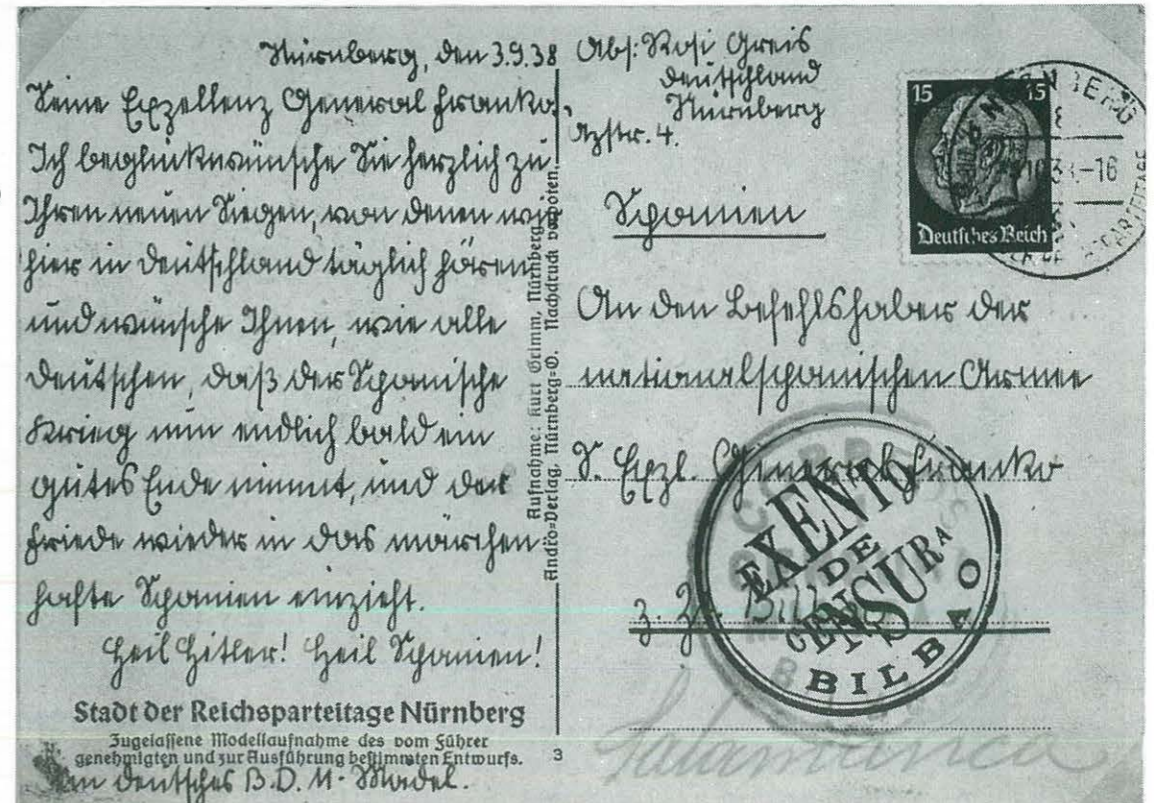 Nürnberg, den 3.9.38
Seine Exzellenz General Franko,
Ich beglückwünsche Sie herzlich zu
Ihren neuen Siegen, von denen wir
hier in Deutschland täglich hören
und wünsche Ihnen, wie alle
Deutschen, daß der Spanische
Krieg nun endlich bald ein
gutes Ende nimmt, und der
Friede wieder in das märchen-
hafte Spanien einzieht.
Heil Hitler! Heil Spanien!
Stadt der Reichsparteitage Nürnberg
Zugelassene Modellaufnahme des vom Führer
genehmigten und zur Ausführung bestimmten Entwurfs.
3
Ein deutsches B.D.M.-Mädel.
Aufnahme: Kurt Grimm, Nürnberg.
Andro-Verlag, Nürnberg-O. Nachdruck verboten.
Abs: Rosi Greis
Deutschland
Nürnberg
str. 4.
15 15
Deutsches Reich
Spanien
An den Befehlshaber der
nationalspanischen Armee
S. Exzl. General Franko
z. Zt.
EXENTO
DE
CENSURA
BILBAO
Salamanca